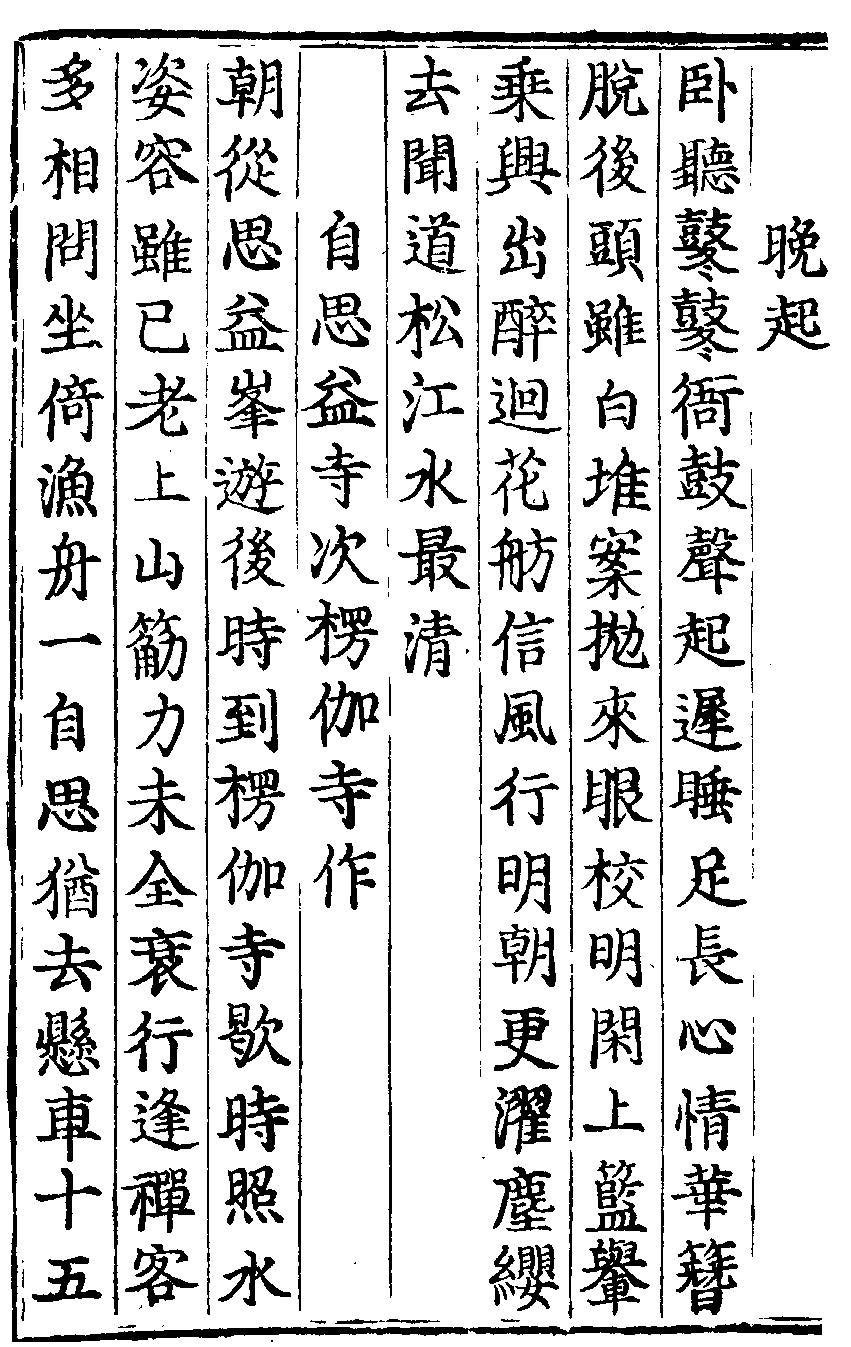 晚起
卧聽鼕鼕衙鼓聲起遲睡足長心情華簪
脫後頭雖白堆案拋來眼校明閑上籃轝
乗興出醉迴花舫信風行明朝更濯塵纓
去聞道松江水最清
自思益寺次楞伽寺作
朝從思益峯遊後時到楞伽寺歇時照水
姿容雖已老上山觔力未全衰行逢禪客
多相問坐倚漁舟一自思猶去懸車十五